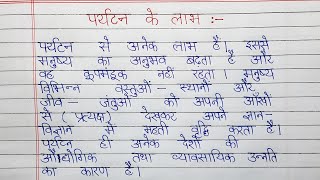 पर्यटन के लाभ :-
पर्यटन से अनेक लाभ हैं। इससे
मनुष्य का अनुभव बढ़ता है और
वह कूपमंडूक नहीं रहता। मनुष्य
विभिन्न वस्तुओं - स्थानों और
जीव - जंतुओं को अपनी आँखों
से ( प्रत्यक्ष ) देखकर अपने ज्ञान-
विज्ञान से महती वृद्धि करता है।
पर्यटन ही अनेक देशों की
औद्योगिक तथा व्यावसायिक उन्नति
का कारण है।